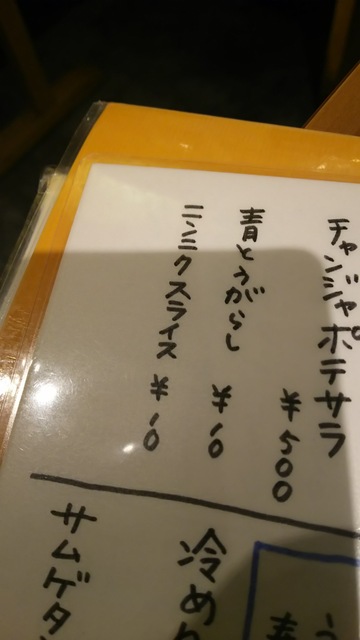 チャンジャポテサラ
¥500
青とうがらし
¥10
ニンニクスライス
¥10
冷め
サムゲタ